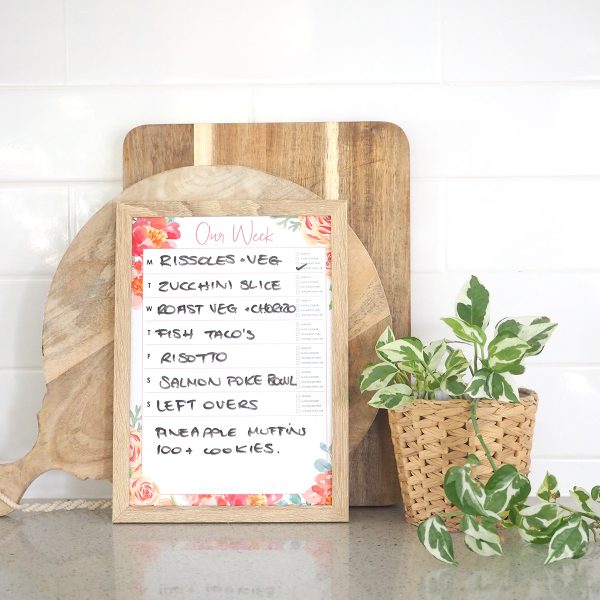 Our Week
M RISSOLES + VEG
T ZUCCHINI SLICE
W ROAST VEG + CHORIZO
T FISH TACO'S
F RISOTTO
S SALMON POKE BOWL
S LEFT OVERS
PINEAPPLE MUFFINS
100+ COOKIES.